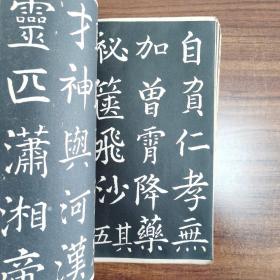 自負仁孝無
加曽霄降藥
祕篋飛沙其
五
才神與河漢
靈匹瀟湘帝